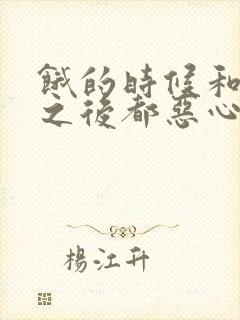 餓的時候和
之後都惡心
楊江升